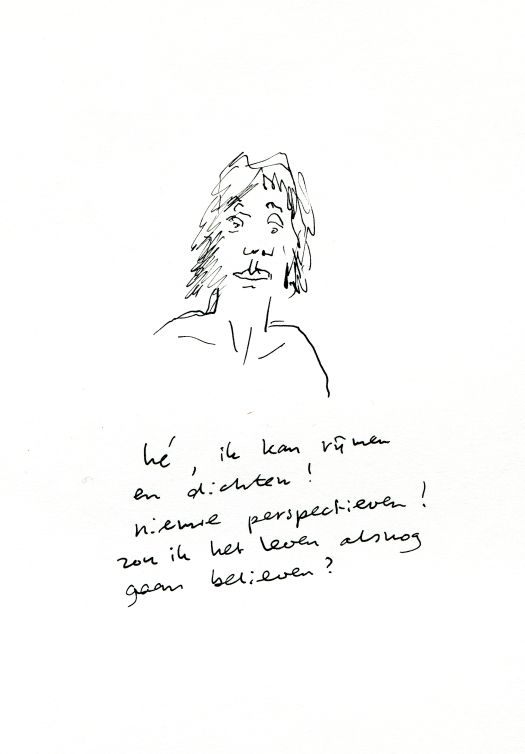 hé, ik kan rijmen
en dichten!
nieuwe perspectieven!
zou ik het leven alsnog
gaan believen?